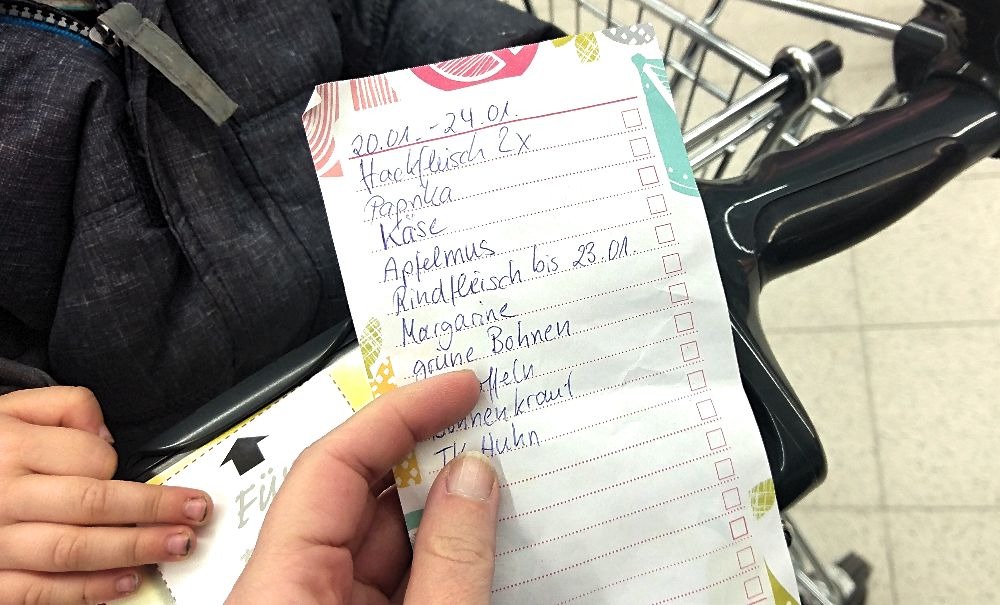 20.01. - 24.01.
Hackfleisch 2x
Paprika
Käse
Apfelmus
Rindfleisch bis 23.01.
Margarine
grüne Bohnen
offeln
Bohnenkraut
TK Huhn
Für